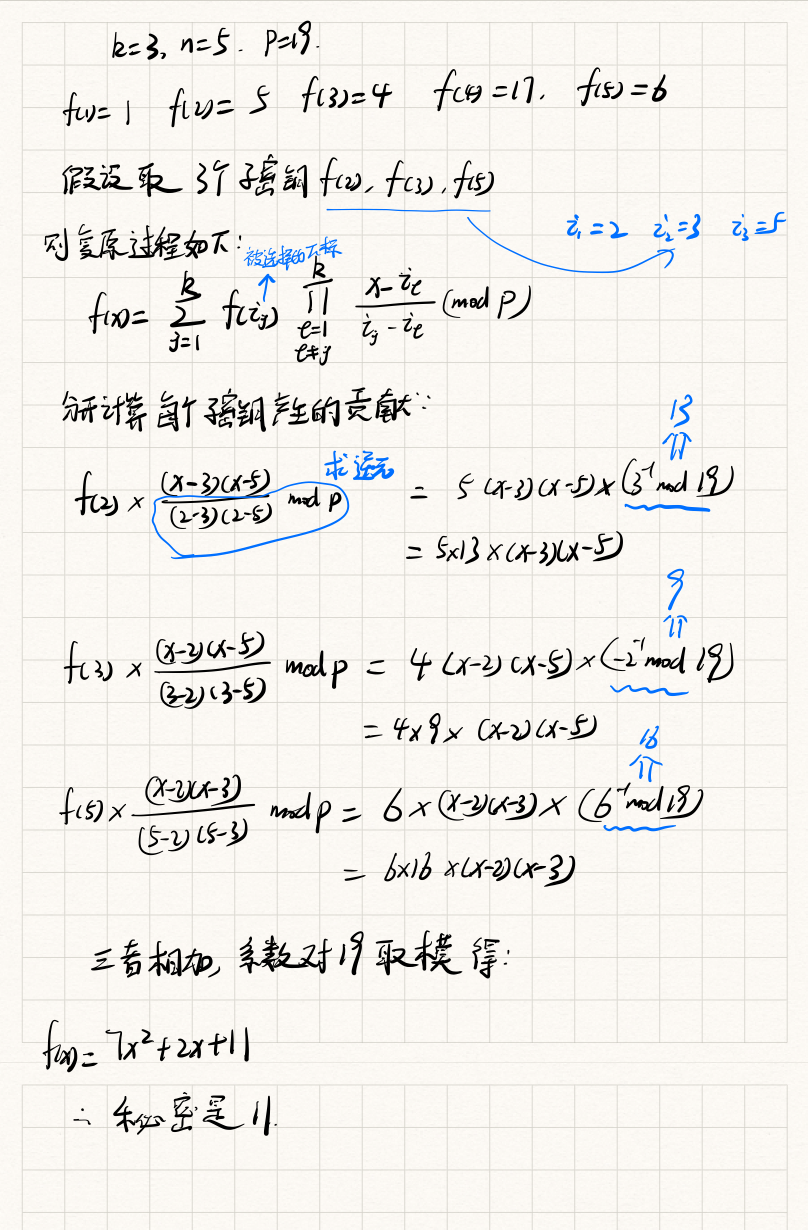 k=3, n=5. P=19.
f(1)=1 f(2)=5 f(3)=4 f(4)=17. f(5)=6
假设取 3个子密钥 f(2), f(3), f(5)
i₁=2 i₂=3 i₃=5
则复原过程如下:
被选择的下标
f(x)= \sum_{j=1}^{k} f(i_j) \prod_{l=1, l≠j}^{k} \frac{x-i_l}{i_j-i_l} (mod P)
分开计算每个子密钥产生的贡献:
13
求逆元
f(2) × \frac{(x-3)(x-5)}{(2-3)(2-5)} mod P = 5(x-3)(x-5)×(3⁻¹ mod 19)
= 5×13×(x-3)(x-5)
9
f(3) × \frac{(x-2)(x-5)}{(3-2)(3-5)} mod p = 4(x-2)(x-5)×(-2⁻¹ mod 19)
= 4×9× (x-2)(x-5)
16
f(5) × \frac{(x-2)(x-3)}{(5-2)(5-3)} mod p = 6×(x-2)(x-3)×(6⁻¹ mod 19)
= 6×16×(x-2)(x-3)
三者相加, 系数对19取模得:
f(x)= 7x²+2x+11
∴ 秘密是11.